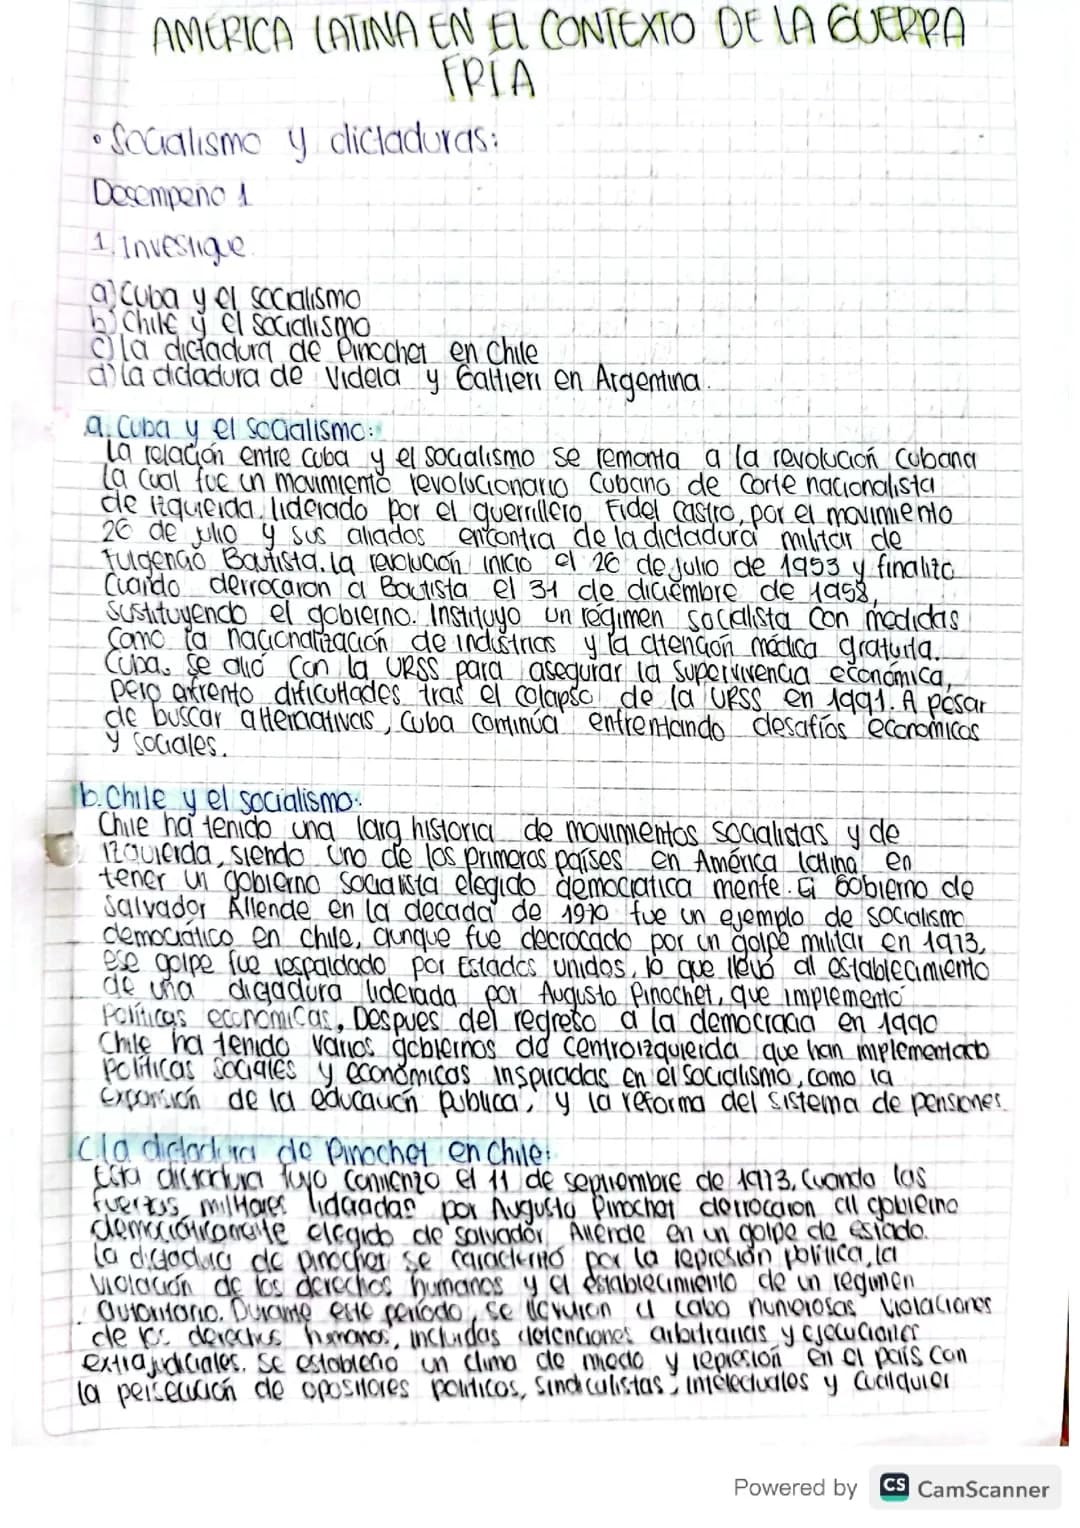 AMÉRICA LATINA EN El CONTEXTO DE LA GUERRA
FRÍA
• Socialismo y dictaduras:
Desempeño 1
1. Investigue.
a) Cuba y el socialismo
b) Chile y el socialismo
c) la dictadura de Pinochet en Chile
d) la dictadura de Videla y Galtieri en Argentina.
a. Cuba y el socialismo:
La relación entre Cuba y el socialismo se remonta a la revolución cubana
la cual fue un movimiento revolucionario Cubano de Corte nacionalista
de izquierda, liderado por el guerrillero Fidel Castro, por el movimiento
26 de julio y sus aliados encontra de la dictadura militar de
Fulgencio Bautista. la revolución inicio el 26 de julio de 1953 y finalizo
Cuando derrocaron a Bautista el 31 de diciembre de 1958,
Sustituyendo el gobierno. Instituyo un régimen socialista con medidas
Como la nacionalización de industrias y la atención médica gratuita.
Cuba, se alió con la URSS para asegurar la supervivencia económica,
pero enfrento dificultades tras el colapso de la URSS en 1991. A pesar
de buscar alternativas, Cuba continúa enfrentando desafíos económicos
y sociales.
b. Chile y el socialismo:
Chile ha tenido una larg historia de movimientos socialistas y de
izquierda, siendo uno de los primeros países en América latina en
tener un gobierno socialista elegido democratica mente. El Gobierno de
Salvador Allende en la decada de 1970 fue un ejemplo de socialismo
democrático en Chile, aunque fue decrocado por un golpe militar en 1973,
ese golpe fue respaldado por Estados Unidos, lo que llevó al establecimiento
de una digadura liderada por Augusto Pinochet, que implementó
Políticas economicas, Despues del regreso a la democracia en 1990
Chile ha tenido varios gobiernos de centroizquierda que han implementado
políticas sociales y económicas inspiradas en el socialismo, como la
expansión de la educación publica, y la reforma del sistema de pensiones.
c. la dictadura de Pinochet en Chile:
Esta dictadura tuvo comienzo el 11 de septiembre de 1973, Cuando las
fuerzas militares lideradas por Augusto Pinochet derrocaron al gobierno
democráticamente elegido de Salvador Allende en un golpe de estado.
la dictadura de pinochet se caracterizó por la represión política, la
violación de los derechos humanos y el establecimiento de un regimen
autoritario. Durante este periodo, se llevaron a cabo numerosas violaciones
de los derechos humanos, incluidas detenciones arbitrarias y ejecuciones
extrajudiciales. Se estableció un clima de miedo y represión en el país con
la persecución de opositores políticos, sindicalistas, intelectuales y cualquier
Powered by CS CamScanner